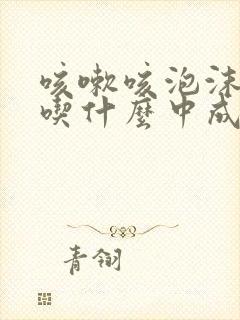 咳嗽咳泡沫
喫什麼中成
青翎